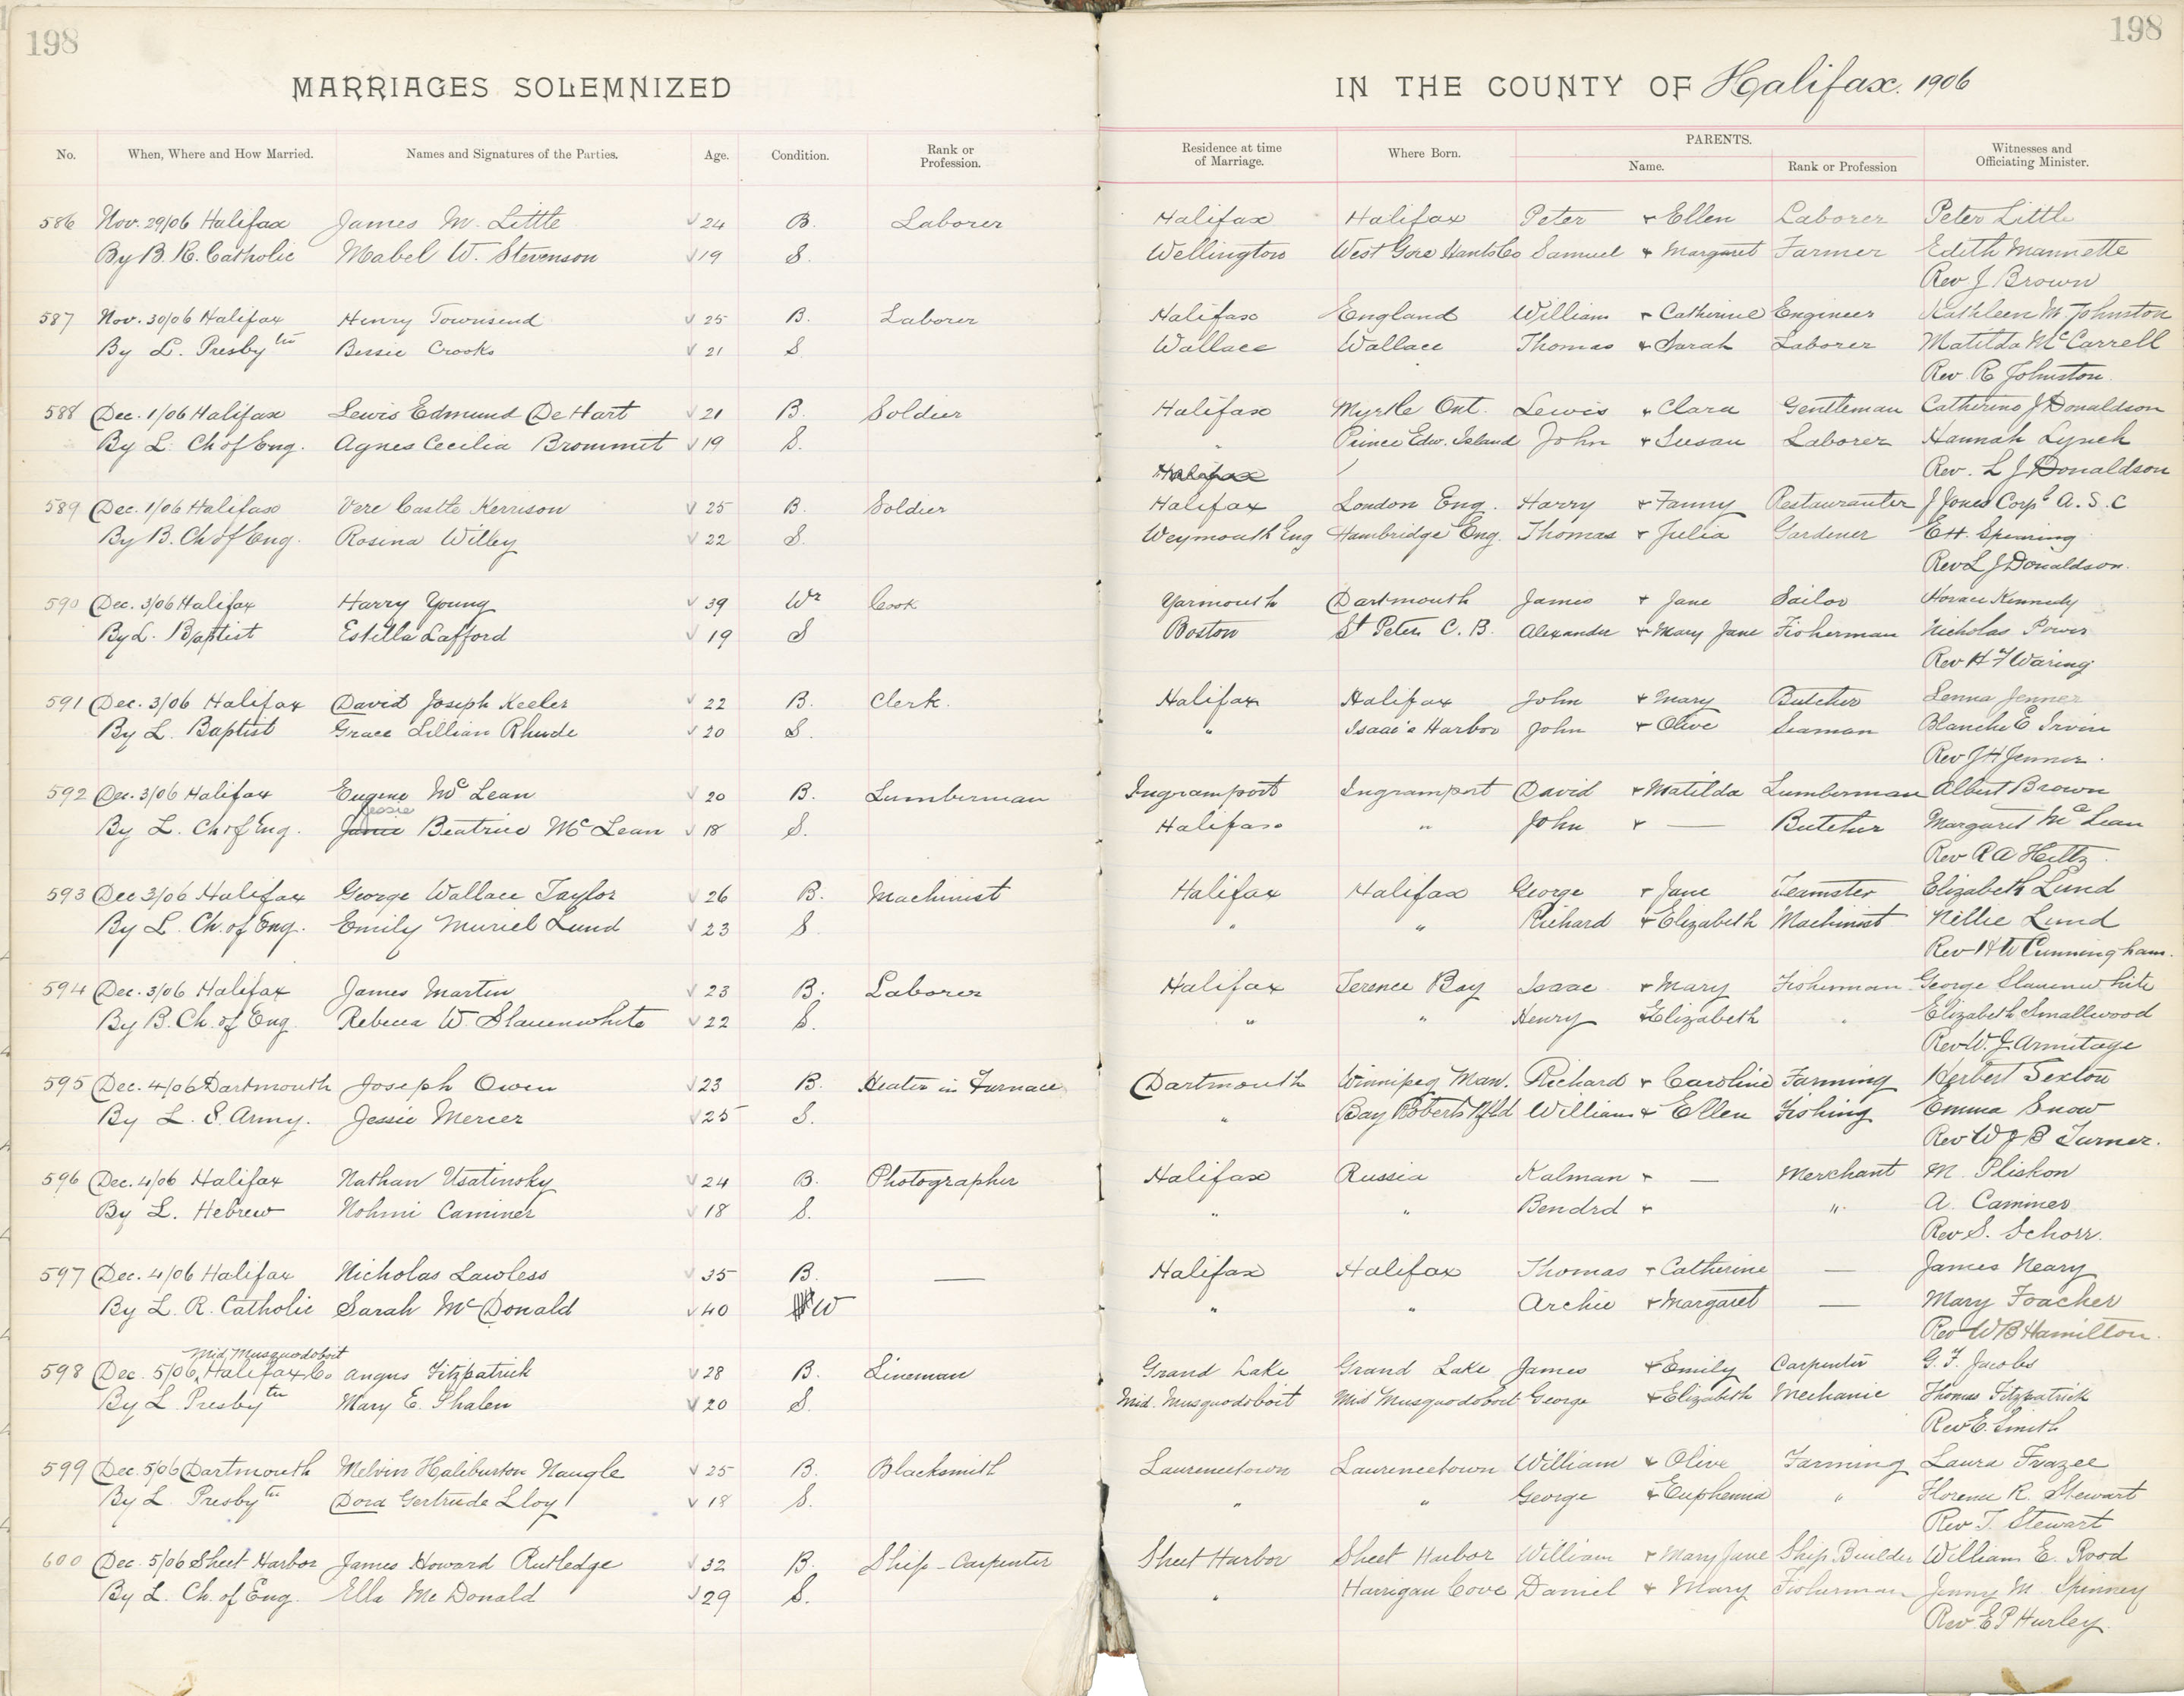 198
198
MARRIAGES SOLEMNIZED IN THE COUNTY OF Halifax. 1906
No. When, Where and How Married. Names and Signatures of the Parties. Age. Condition. Rank or Profession. Residence at time of Marriage. Where Born. PARENTS. Name. Rank or Profession Witnesses and Officiating Minister.
586 Nov. 29/06 Halifax James M. Little √ 24 B. Laborer Halifax Halifax Peter + Ellen Laborer Peter Little
By B. R. Catholic Mabel W. Stevenson √ 19 S. Wellington West Gore Hants Co Samuel + Margaret Farmer Edith Mannette
Rev J Brown
587 Nov. 30/06 Halifax Henry Townsend √ 25 B. Laborer Halifax England William + Catherine Engineer Kathleen M. Johnston
By L. Presbytn Bessie Crooks √ 21 S Wallace Wallace Thomas + Sarah Laborer Matilda McCarrell
Rev. R Johnston.
588 Dec. 1/06 Halifax Lewis Edmund DeHart √ 21 B. Soldier Halifax Myrtle Ont. Lewis + Clara Gentleman Catherine J Donaldson
By L. Ch of Eng. Agnes Cecilia Brommit √ 19 S. " Prince Edw. Island John + Susan Laborer Hannah Lynch
Halifax Rev. L J Donaldson
589 Dec. 1/06 Halifax Vere Castle Kerrison √ 25 B. Soldier Halifax London Eng. Harry + Fanny Restauranter J Jones Corpl A. S. C
By B. Ch of Eng. Rosina Willey √ 22 S. Weymouth Eng Hambridge Eng. Thomas + Julia Gardener E H. Spearing
Rev L J Donaldson.
590 Dec. 3/06 Halifax Harry Young √ 39 Wr Cook Yarmouth Dartmouth James + Jane Sailor Horace Kennedy
By L. Baptist Estella Lafford √ 19 S Boston St Peters C. B. Alexander + Mary Jane Fisherman Nicholas Power
Rev H F Waring
591 Dec. 3/06 Halifax David Joseph Keeler √ 22 B. Clerk. Halifax Halifax John + Mary Butcher Lenna Jenner
By L. Baptist Grace Lillian Rhude √ 20 S. " Isaac's Harbor John + Olive Seaman Blanche E Irvin
Rev J H Jenner.
592 Dec. 3/06 Halifax Eugene Mc Lean √ 20 B. Lumberman Ingramport Ingramport David + Matilda Lumberman Albert Brown
Jessie
By L. Ch of Eng. Janie Beatrice Mc Lean √ 18 S. Halifax " John + — Butcher Margaret Mc Lean
Rev R A Hiltz.
593 Dec 3/06 Halifax George Wallace Taylor √ 26 B. Machinist Halifax Halifax George + Jane Teamster Elizabeth Lund
By L. Ch. of Eng. Emily Muriel Lund √ 23 S " " Richard + Elizabeth Machinist Nellie Lund
Rev H W Cunningham.
594 Dec. 3/06 Halifax James Martin √ 23 B. Laborer Halifax Terence Bay Isaac + Mary Fisherman George Slauenwhite
By B. Ch. of Eng. Rebecca W. Slauenwhite √ 22 S. " " Henry + Elizabeth " Elizabeth Smallwood
Rev W. J. Armitage
595 Dec. 4/06 Dartmouth Joseph Owen √ 23 B. Heater in Furnace Dartmouth Winnipeg Man. Richard + Caroline Farming Herbert Sexton
By L. S. Army. Jessie Mercer √ 25 S. " Bay Roberts Nfld William + Ellen Fishing Emma Snow
Rev W J B Turner.
596 Dec. 4/06 Halifax Nathan Usatinsky √ 24 B. Photographer Halifax Russia Kalman + — Merchant M. Pliskon
By L. Hebrew Nohmi Caminer √ 18 S. " " Bendrd + " A. Caminer
Rev S. Schorr.
597 Dec. 4/06 Halifax Nicholas Lawless √ 35 B. — Halifax Halifax Thomas + Catherine — James Neary
By L. R. Catholic Sarah McDonald √ 40 W " " Archie + Margaret — Mary Foacher
Rev W B Hamilton.
Mid. Musquodoboit
598 Dec. 5/06 Halifax Co Angus Fitzpatrick √ 28 B. Lineman Grand Lake Grand Lake James + Emily Carpenter G. F. Jacobs
By L. Presbytn Mary E. Phalen √ 20 S. Mid. Musquodoboit Mid Musquodoboit George + Elizabeth Mechanic Thomas Fitzpatrick
Rev E. Smith
599 Dec. 5/06 Dartmouth Melvin Haliburton Naugle √ 25 B. Blacksmith Laurencetown Laurencetown William + Olive Farming Laura Frazee
By L. Presbytn Dora Gertrude Lloy √ 18 S. " " George + Euphemia " Florence R. Stewart
Rev. T. Stewart
600 Dec. 5/06 Sheet Harbor James Howard Rutledge √ 32 B. Ship-Carpenter Sheet Harbor Sheet Harbor William + Mary Jane Ship Builder William E. Rood
By L. Ch. of Eng. Ella Mc Donald √ 29 S. " Harrigan Cove Daniel + Mary Fisherman Jenny M. Spinney
Rev. E P Hurley.